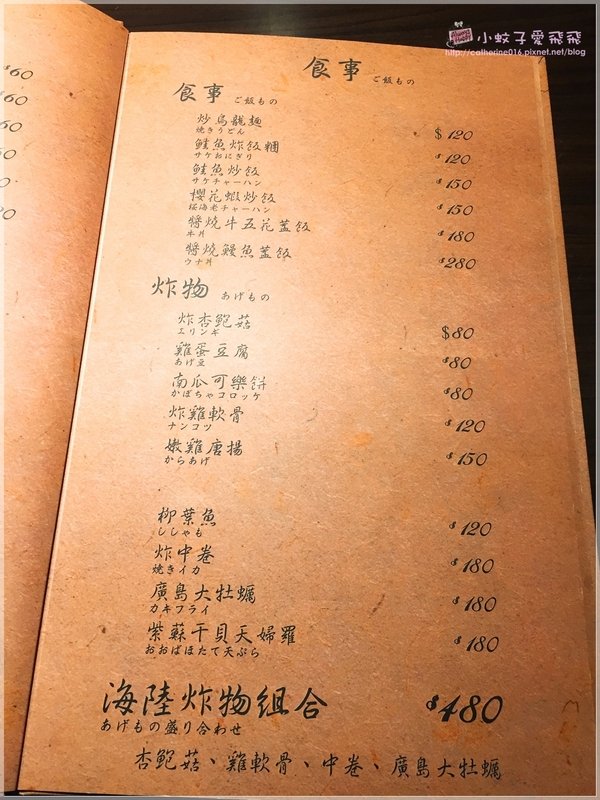 小蚊子愛飛飛
http://catherine016.pixnet.net/blog
$60
60
60
60
0
20
食事 ご飯もの
食事 ご飯もの
炒烏龍麵 $120
焼きうどん
鮭魚炸飯糰 $120
サケおにぎり
鮭魚炒飯 $150
サケチャーハン
櫻花蝦炒飯 $150
桜海老チャーハン
醬燒牛五花蓋飯 $180
牛丼
醬燒鰻魚蓋飯 $280
ウナ丼
炸物 あげもの
炸杏鮑菇 $80
エリンギ
雞蛋豆腐 $80
あげ豆
南瓜可樂餅 $80
かぼちゃコロッケ
炸雞軟骨 $120
ナンコツ
嫩雞唐揚 $150
からあげ
柳葉魚 $120
ししゃも
炸中卷 $180
焼きイカ
廣島大牡蠣 $180
カキフライ
紫蘇干貝天婦羅 $180
おおばほたて天ぷら
海陸炸物組合 $480
あげもの盛り合わせ
杏鮑菇、雞軟骨、中卷、廣島大牡蠣